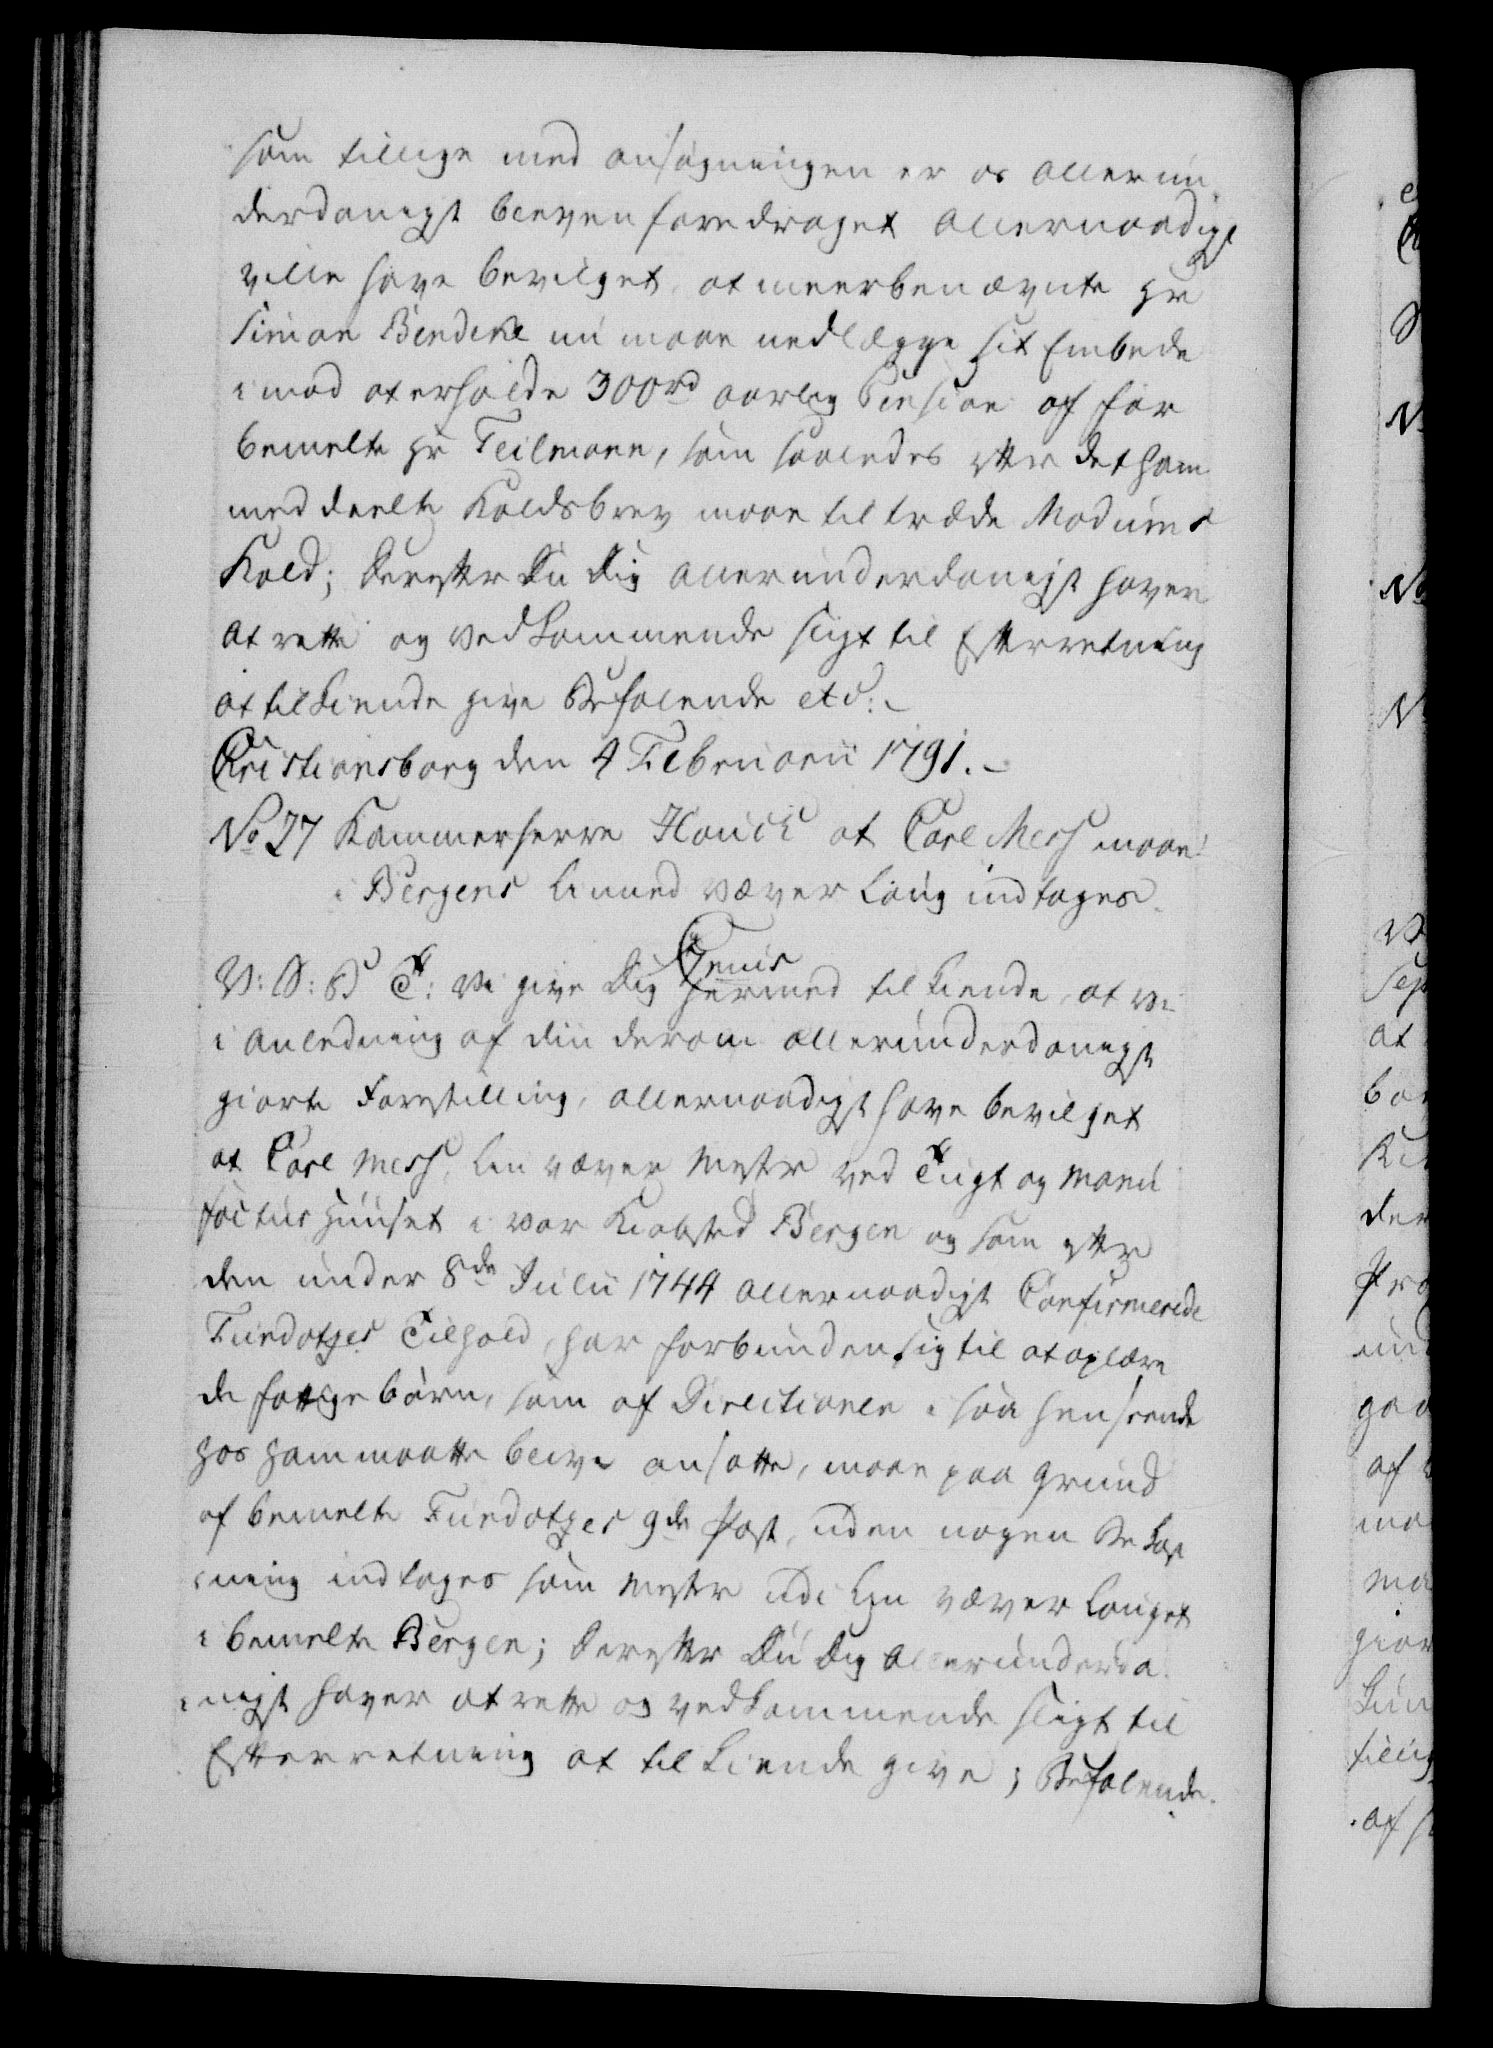 som tillige med ansøgningen er os allerun-
derdanigst bleven foredraget allernaadigst
ville have bevilget, at meerbenævnte Hr
Simon Bendeke nu maae nedlægge sit Embede
imod at erholde 300rd aarlig Pension af for
bemelte Hr Teilmann, som saaledes efter det ham
meddeelte Kaldsbrev maae tiltræde Modums
Kald; Derefter Du dig allerunderdanigst haver
at rette og vedkommende sligt til Efterretning
at tilkiende give Befalende etc:
Christiansborg den 4 Februarii 1791.
No 27 Kammerherre Hauch at Carl Mess maae
i Bergens Linned væver Laug indtages.
Cronis
V: S: G T: Vi give Dig hermed tilkiende, at vi
i anledning af din derom allerunderdanigst
giorte Forestilling, allernaadigst have bevilget
at Carl Mess, Linvæver Mester ved Tugt og Manu
factur Huuset i vor Kiøbsted Bergen og som efter
den under 8de Julii 1744 allernaadigst Confirmerede
Fundatzes Tilhold, har forbunden sig til at oplære
de fattige børn, som af Directionen i saa henseende
hos ham maatte blive ansatte, maae paa Grund
af bemelte Fundatzes 9de Post, uden nogen Bekost
ning indtages som Mester udi Linvæver Lauget
i bemelte Bergen; Derefter Du dig allerunderda-
nigst haver at rette og vedkommende sligt til
Efterretning at tilkiende give; Befalende.